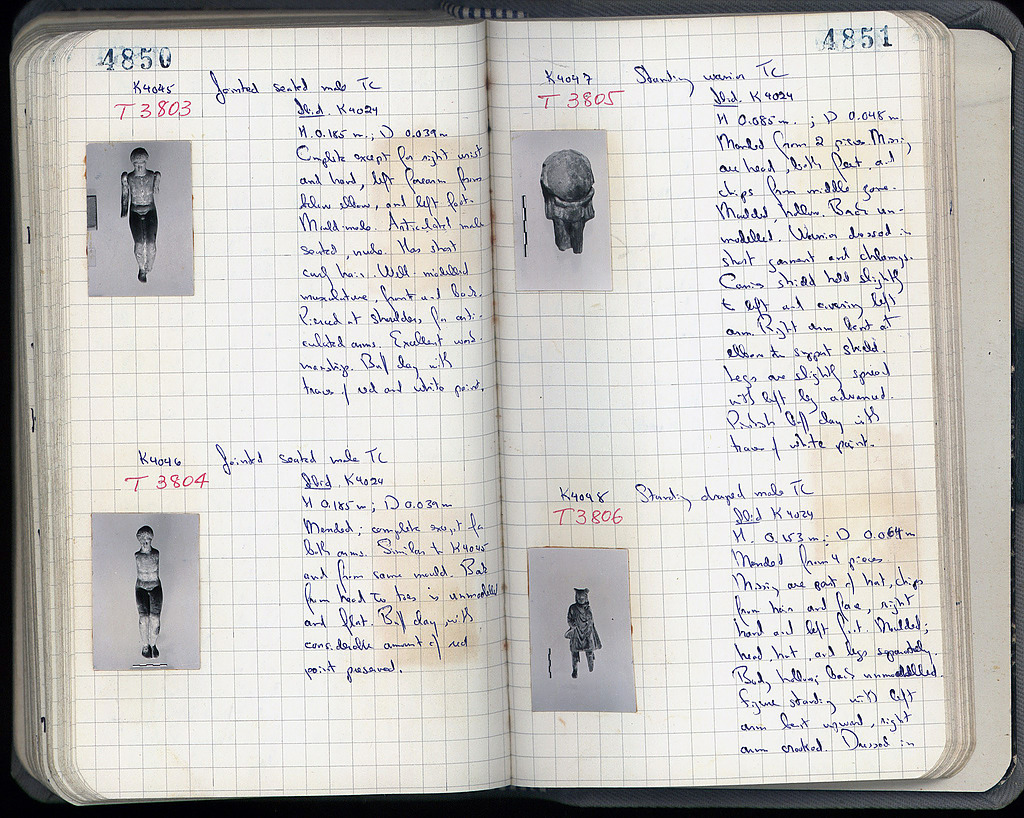 4850
K4045 Jointed seated male TC
T 3803
Ibid. K4024
H. 0.185 m.; D 0.039 m
Complete except for right wrist
and hand, left forearm from
below elbow, and left foot.
Mold made. Articulated male
seated, nude. Has short
curly hair. Well modelled
musculature, front and back.
Pierced at shoulders for arti-
culated arms. Excellent work-
manship. Buff clay with
traces of red and white paint.
K4046 Jointed seated male TC
T 3804
Ibid. K4024
H 0.185 m; D 0.039 m
Mended; complete except for
both arms. Similar to K4045
and from same mould. Back
from head to toes is unmodelled
and flat. Buff clay with
considerable amount of red
paint preserved.
4851
K4047 Standing warrior TC
T 3805
Ibid. K4024
H 0.085 m.; D 0.048 m.
Mended from 2 pieces. Missing
are head, both feet and
chips from middle zone.
Molded, hollow. Back un-
modelled. Warrior dressed in
short garment and chlamys.
Carries shield held slightly
to left and covering left
arm. Right arm bent at
elbow to support shield.
Legs are slightly spread
with left leg advanced.
Pinkish buff clay with
traces of white paint.
K4048 Standing draped male TC
T3806
Ibid K4024
H. 0.153 m; D 0.064 m
Mended from 4 pieces
Missing are part of hat, chips
from hair and face, right
hand and left foot. Moulded;
head, hat, and legs separately.
Body hollow; back unmodelled.
Figure standing with left
arm bent upward, right
arm crooked. Dressed in